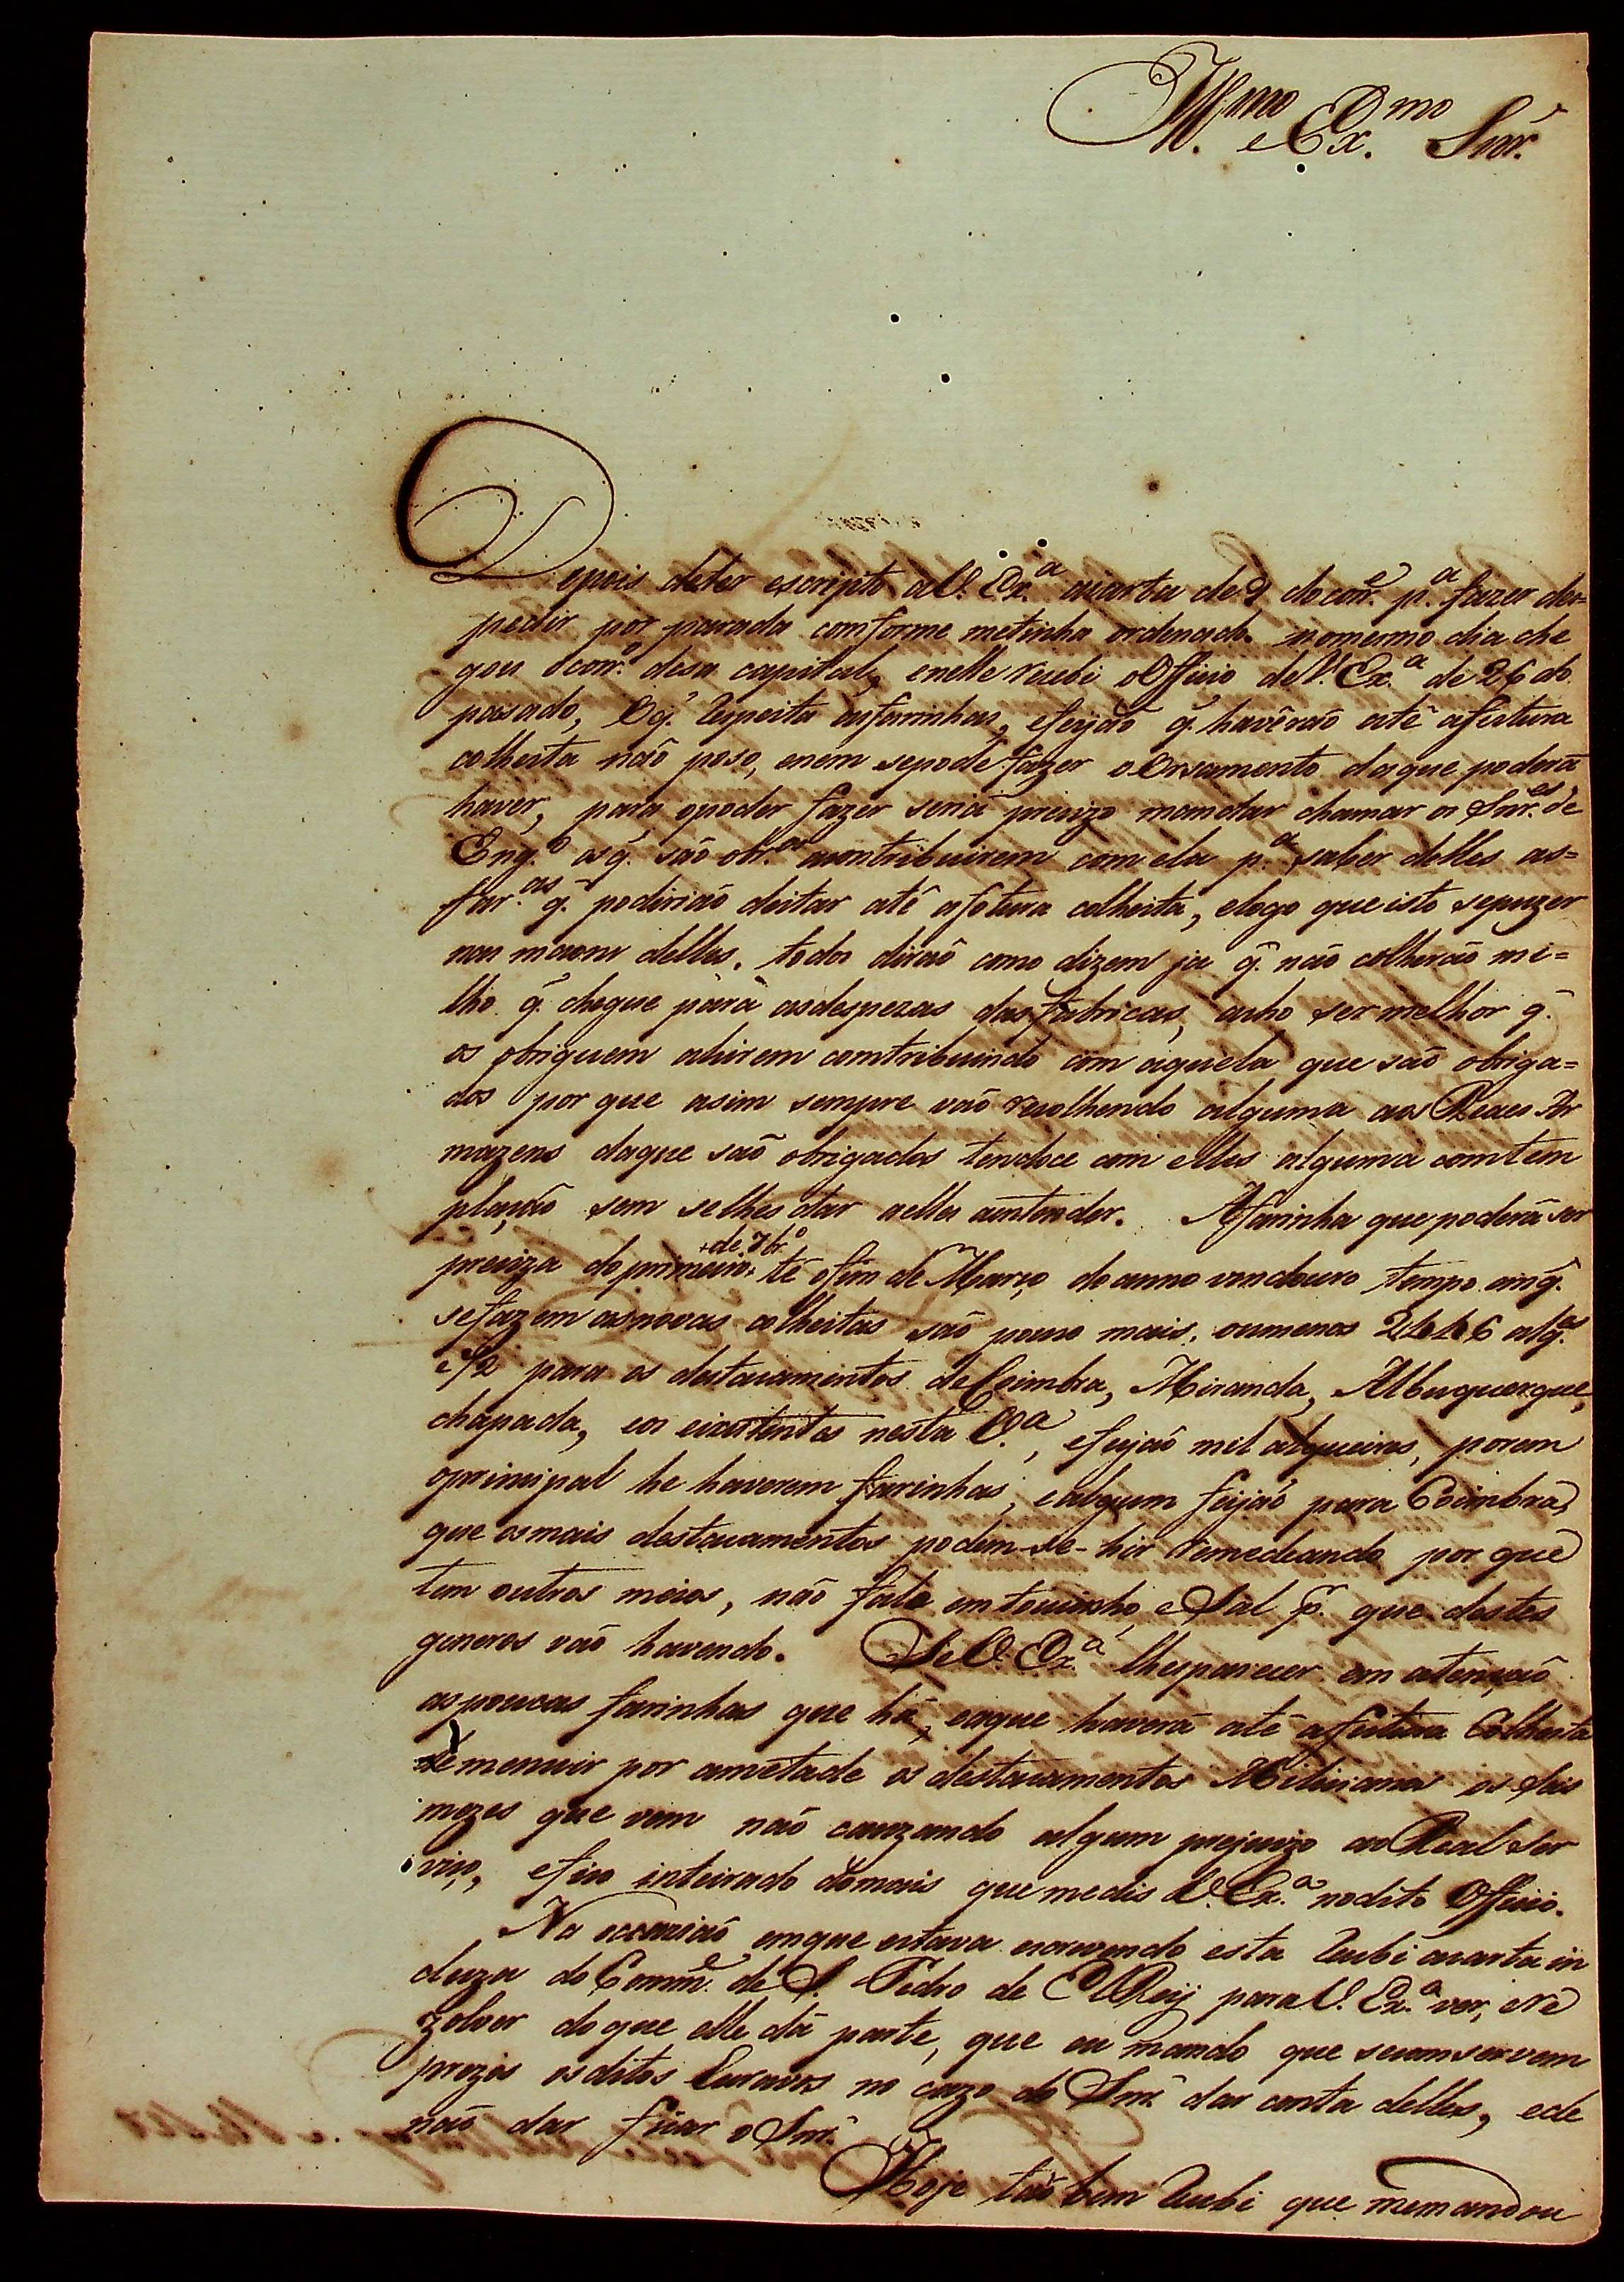 Ill.mo e Ex.mo Snr.
Depois deter escripto aV. Ex.a acarta de 9 docorr.e p.a fazer des=
pedir por parada comforme metinha ordenado. nomermo dia che
gou ocorr.o desa capital, enelle recebi oOfficio deV. Ex.a de 26 do
pasado, Oq.' respeita asfarinhas, efeijão q.' haverão atê afutura
colheita não poso, enem sepode fazer oOrsamento daque poderá
haver, para opoder fazer seria precizo mandar chamar os Snr.es de
Eng.o osq.' são obr.os acontribuirem com ela p.a saber delles as=
far.as q.' podirião deitar atê afotura colheita, elogo que isto sepuzer
nas maons delles, todos dirão como dizem ja q.' não colherão mi=
lho q.' chegue pàrà asdespezas das fabricas, acho ser melhor q.'
os obriguem ahirem comtribuindo com aquela que são obriga=
dos por que asim sempre vão recolhendo alguma aos Reaes Ar
mazens daque são obrigados tendoce com elles alguma comtem
plação sem selhes dar aella aentender. Afarinha que poderá ser
preciza do primeiro + de 7br.o té ofim de Março do anno vendouro tempo emq.'
sefazem asnovas colheitas são pouco mais, oumenos 2446 alq.es
e 1/2 para os destacamentos deCoimbra, Miranda, Albuquerque,
chapada, eos eixistentes nesta V.a, efeijão mil alqueires, porem
oprincipal he haverem farinhas, ealguem feijão para Coimbra,
que osmais destacamentos podem-se-hir remedeando por que
tem outros meios, não falo em toucinho, eSal p.r que destes
generos vão havendo. SeV. Ex.a lhesparecer em atenção
aspoucas farinhas que há, eaque haverá atê afutura Colheita
demenuir por ametade os destacamentos Milicianos os seis
mezes que vem não cauzando algum prejuizo aoReal Ser
viço, efico inteirado domais que medis V. Ex.a nodito Officio.
Na occazião emque estava escrevendo esta recebi acarta in
cluza do Comm.e de S. Pedro de ElReij para V. Ex.a ver, ere
zolver doque elle dá parte, que eu mando que seconservem
prezos osditos Escravos no cazo do Snr. dar conta delles, ede
não dar ficar o Snr.
Hoje tão bem recebi que memandou